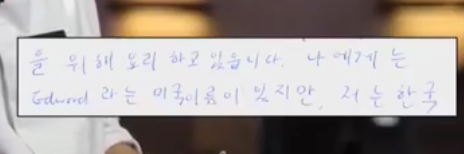 을 위해 요리 하고 있습니다. 나에게는
Edward 라는 미국이름이 있지만, 저는 한국